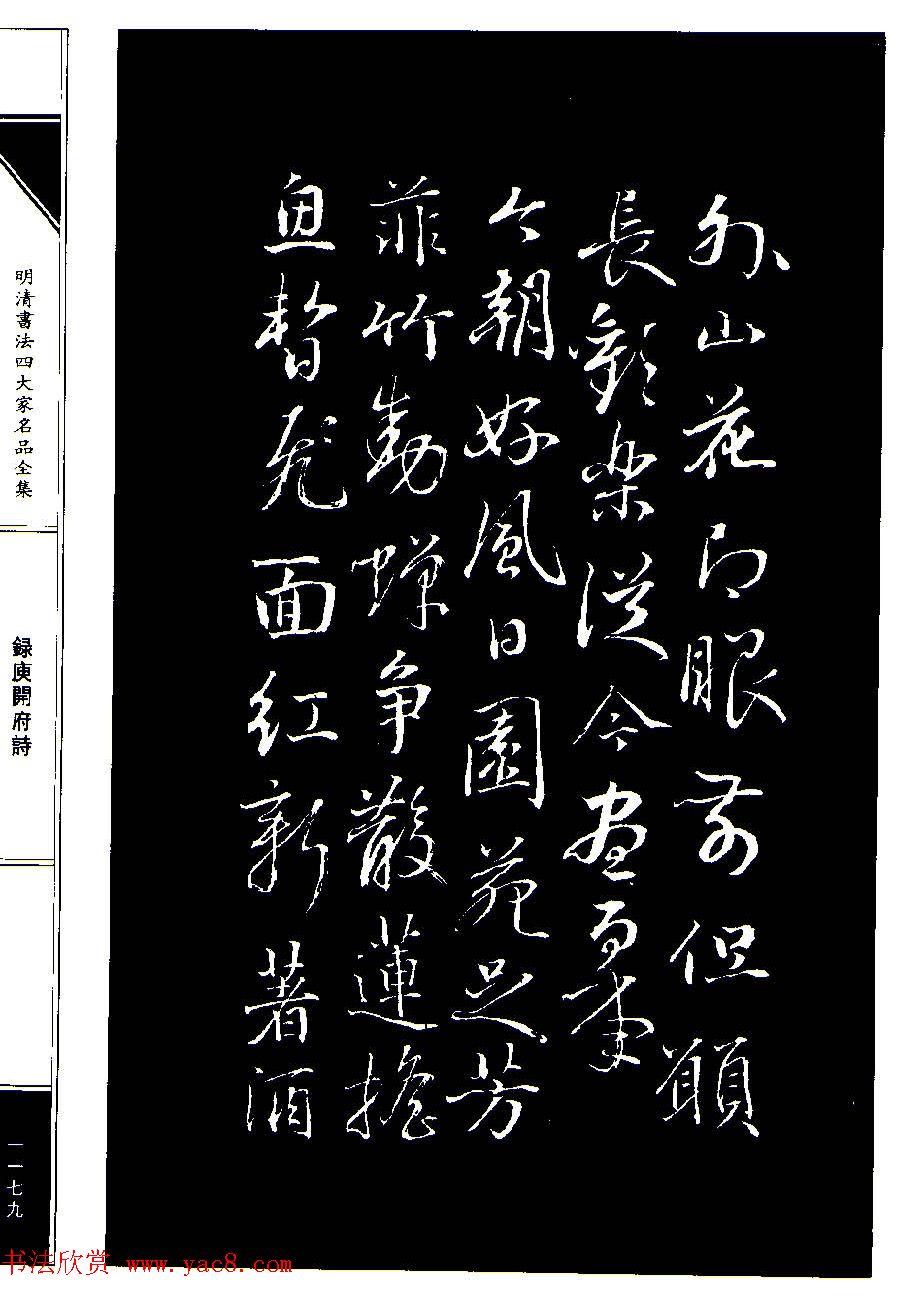 外山花即眼前但願
長歡樂從今盡百年
今朝好風日園苑足芳
菲竹動蟬争散蓮搖
魚暫飛面紅新著酒
明清書法四大家名品全集
録庾開府詩
一一七九
书法欣赏 www.yac8.com